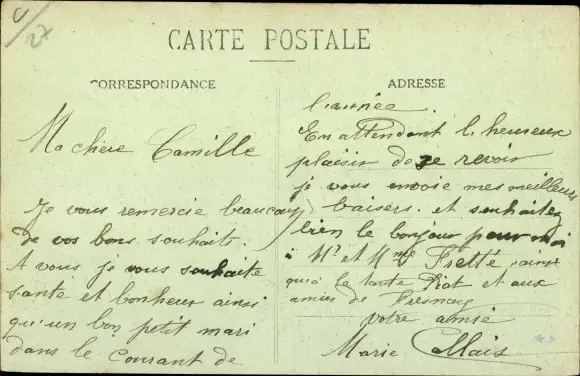 CARTE POSTALE
CORRESPONDANCE
Ma chère Camille
Je vous remercie beaucoup
de vos bons souhaits.
A vous je vous souhaite
santé et bonheur ainsi
qu'un bon petit mari
dans le courant de
ADRESSE
l'année.
En attendant l'heureux
plaisir de se revoir
je vous envoie mes meilleurs
baisers. et souhaitez
bien le bonjour pour moi
à Mr et Mme Fretté, ainsi
qu'à le tante Piat et aux
amies de Fresnay
votre amie
Marie Callais